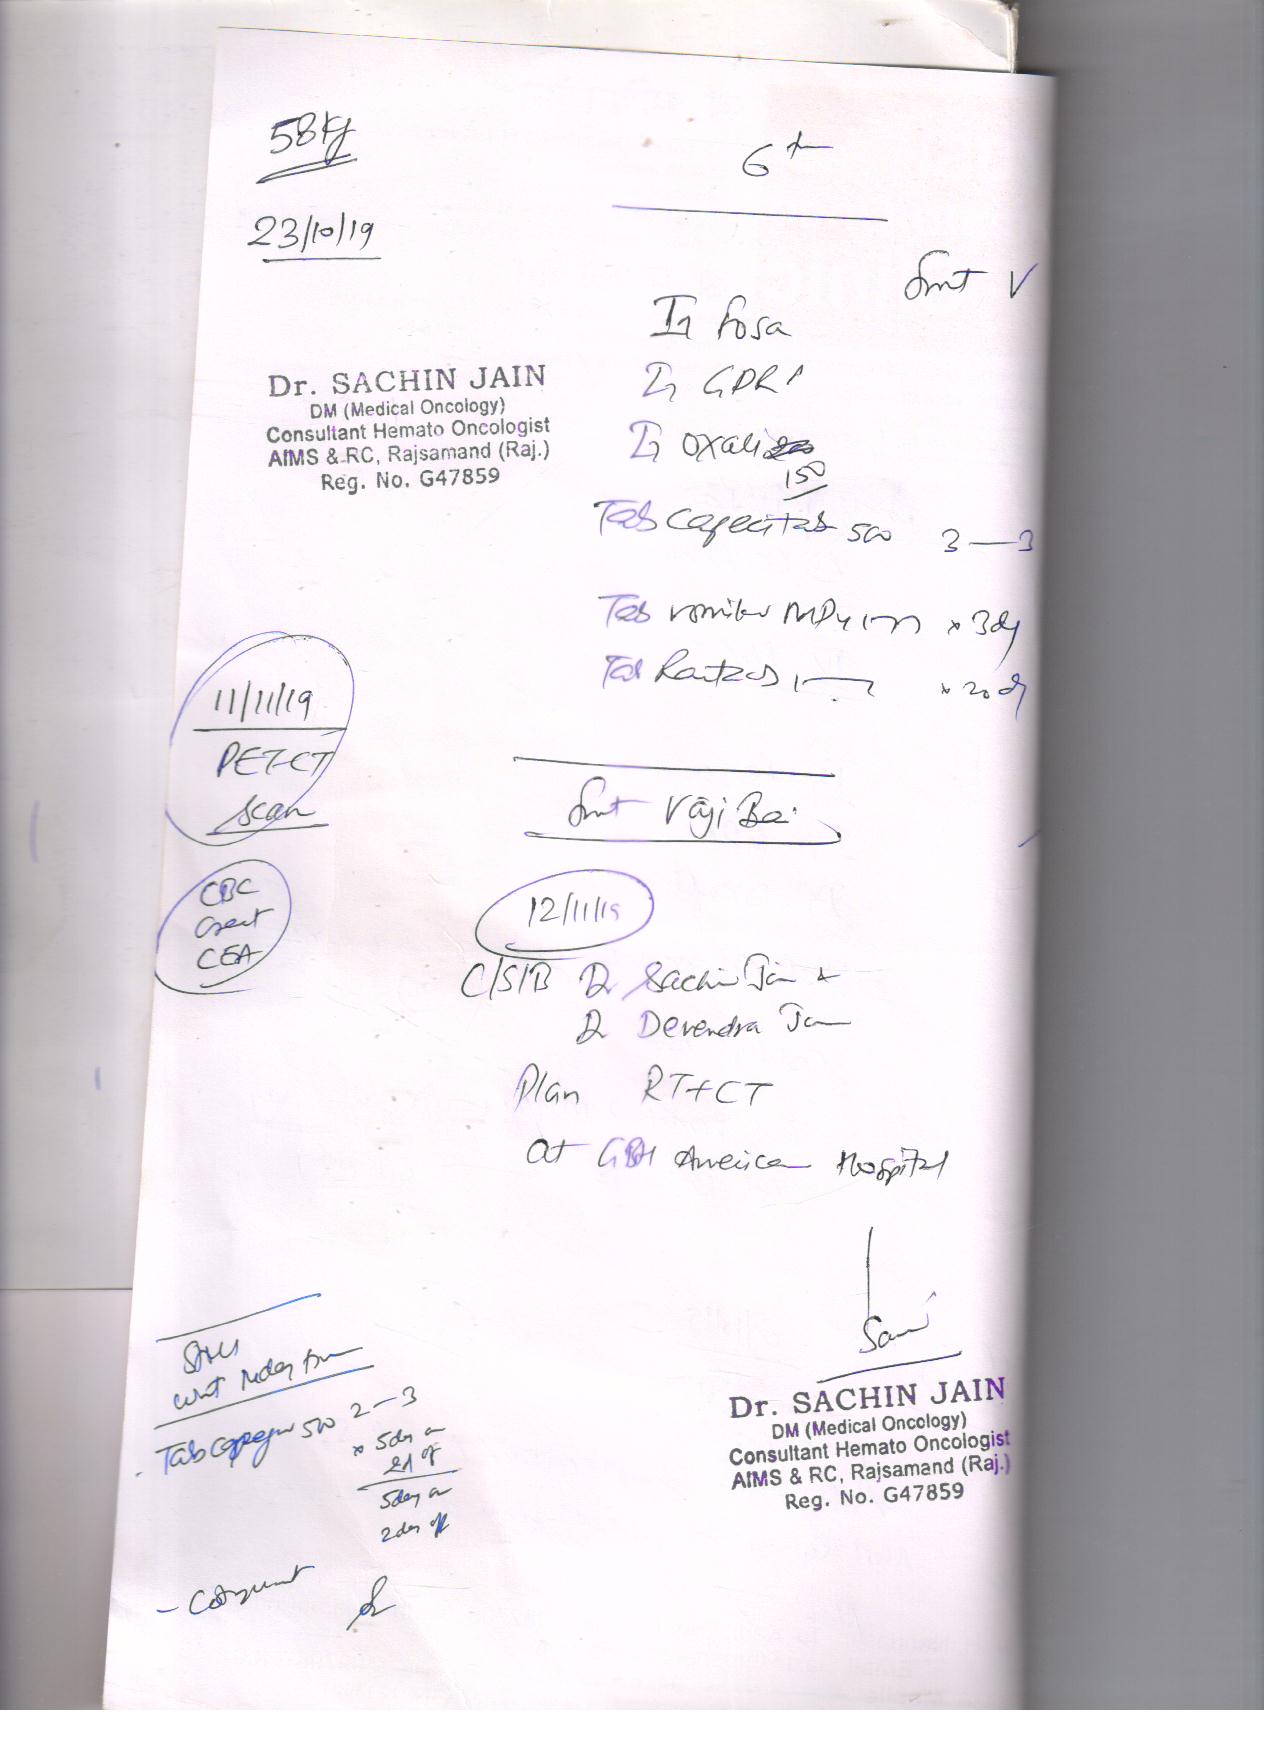 58kg
6th
23/10/19
Smt V
Inj Fosa
Inj GDRP
Inj Oxali
150
Dr. SACHIN JAIN
DM (Medical Oncology)
Consultant Hemato Oncologist
AIMS & RC, Rajsamand (Raj.)
Reg. No. G47859
Tab Capecitab 500 3—3
Tab MD4 x 3dy
Tab x 20 dy
11/11/19
PET-CT
Scan
Smt Vaji Bai
CBC
Creat
CEA
12/11/19
C/S/B Dr Sachin Jain +
Dr Devendra Jain
Plan RT+CT
at GBH American Hospital
Dr. SACHIN JAIN
DM (Medical Oncology)
Consultant Hemato Oncologist
AIMS & RC, Rajsamand (Raj.)
Reg. No. G47859
Tab 500 2—3
x 5dy on
2d of
5day on
2day off